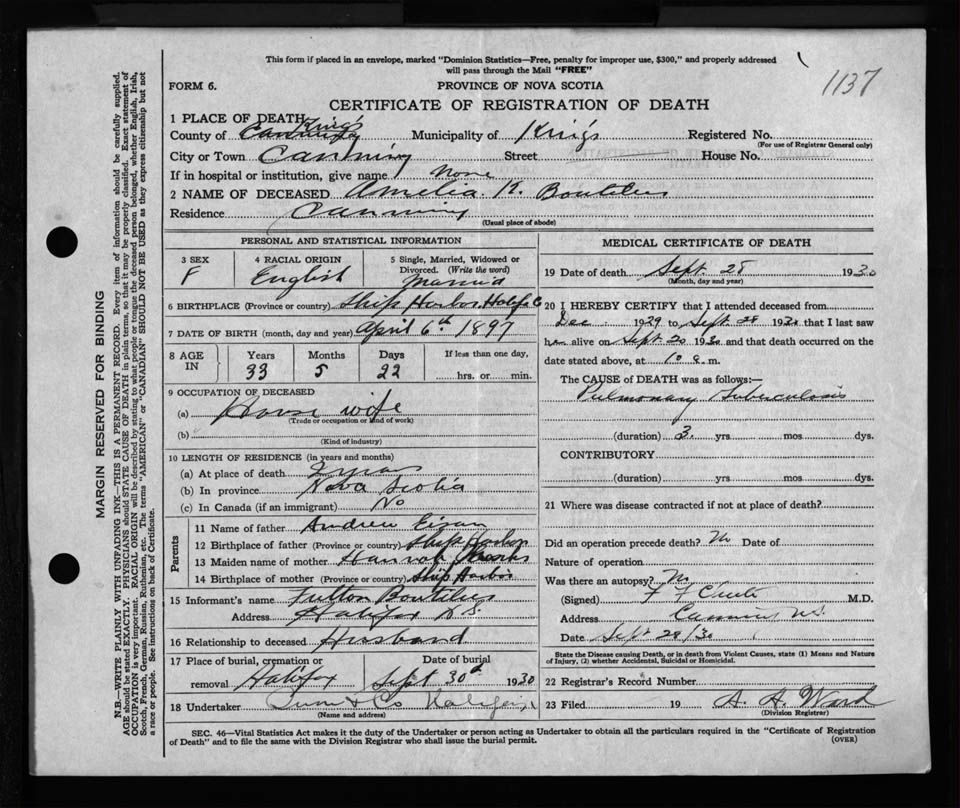 This form if placed in an envelope, marked "Dominion Statistics—Free, penalty for improper use, $300," and properly addressed
will pass through the Mail "FREE"
1137
FORM 6.
PROVINCE OF NOVA SCOTIA
CERTIFICATE OF REGISTRATION OF DEATH
1 PLACE OF DEATH
County of Canning King's Municipality of King's Registered No.
(For use of Registrar General only)
City or Town Canning Street House No.
If in hospital or institution, give name None
2 NAME OF DECEASED Amelia. Boutilier
Residence Canning
(Usual place of abode)
PERSONAL AND STATISTICAL INFORMATION
3 SEX F
4 RACIAL ORIGIN English
5 Single, Married, Widowed or Divorced. (Write the word) Married
6 BIRTHPLACE (Province or country) Ship Harbor Halifax Co
7 DATE OF BIRTH (month, day and year) April 6th 1897
8 AGE IN Years 33 Months 5 Days 22 If less than one day, hrs. or min.
9 OCCUPATION OF DECEASED
(a) House wife
(Trade or occupation or kind of work)
(b)
(Kind of industry)
10 LENGTH OF RESIDENCE (in years and months)
(a) At place of death
(b) In province Nova Scotia
(c) In Canada (if an immigrant) No
Parents
11 Name of father Andrew Eisan
12 Birthplace of father (Province or country) Ship Harbor
13 Maiden name of mother Hannah
14 Birthplace of mother (Province or country) Ship Harbor
15 Informant's name Fulton Boutilier
Address Halifax N.S.
16 Relationship to deceased Husband
17 Place of burial, cremation or removal Halifax Date of burial Sept 30th 1930
18 Undertaker & Co Halifax
(Name and address)
MEDICAL CERTIFICATE OF DEATH
19 Date of death Sept. 28 1930
(Month, day and year)
20 I HEREBY CERTIFY that I attended deceased from
Dec 1929 to Sept 28 1930 that I last saw
her alive on Sept 20 1930 and that death occurred on the
date stated above, at 10 a.m.
The CAUSE of DEATH was as follows:
Pulmonary Tuberculosis
(duration) 3 yrs mos dys.
CONTRIBUTORY
(duration) yrs mos dys.
21 Where was disease contracted if not at place of death?
Did an operation precede death? No Date of
Nature of operation
Was there an autopsy? No
(Signed) M.D.
Address Canning N.S.
Date Sept 28/30
State the Disease causing Death, or in death from Violent Causes, state (1) Means and Nature
of Injury, (2) whether Accidental, Suicidal or Homicidal.
22 Registrar's Record Number
23 Filed 19 Ward
(Division Registrar)
SEC. 46—Vital Statistics Act makes it the duty of the Undertaker or person acting as Undertaker to obtain all the particulars required in the "Certificate of Registration
of Death" and to file the same with the Division Registrar who shall issue the burial permit.
(OVER)
MARGIN RESERVED FOR BINDING
N.B.—WRITE PLAINLY WITH UNFADING INK—THIS IS A PERMANENT RECORD. Every item of information should be carefully supplied.
AGE should be stated EXACTLY. PHYSICIANS should STATE CAUSE OF DEATH in plain terms, so that it may be properly classified. Exact statement of
OCCUPATION is very important. RACIAL ORIGIN will be described by stating to what people or tongue the deceased person belonged, whether English, Irish,
Scotch, French, German, Russian, Ruthenian, etc. The terms "AMERICAN" or "CANADIAN" SHOULD NOT BE USED as they express citizenship but not
a race or people. See instructions on back of Certificate.